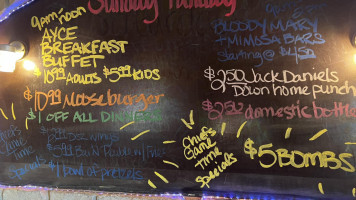 Sunday Funday
9am-noon
AYCE
BREAKFAST
BUFFET
$10.99 Adults $5.99 Kids
$10.99 Mooseburger
$1 OFF ALL DINNERS
BLOODY MARY
+ MIMOSA BARS
starting @ $4.50
$2.50 Jack Daniels
Down home punch
domestic bottle
Chef's
Game
time
specials
$5 BOMBS
Game
Time
specials
bowl of pretzels